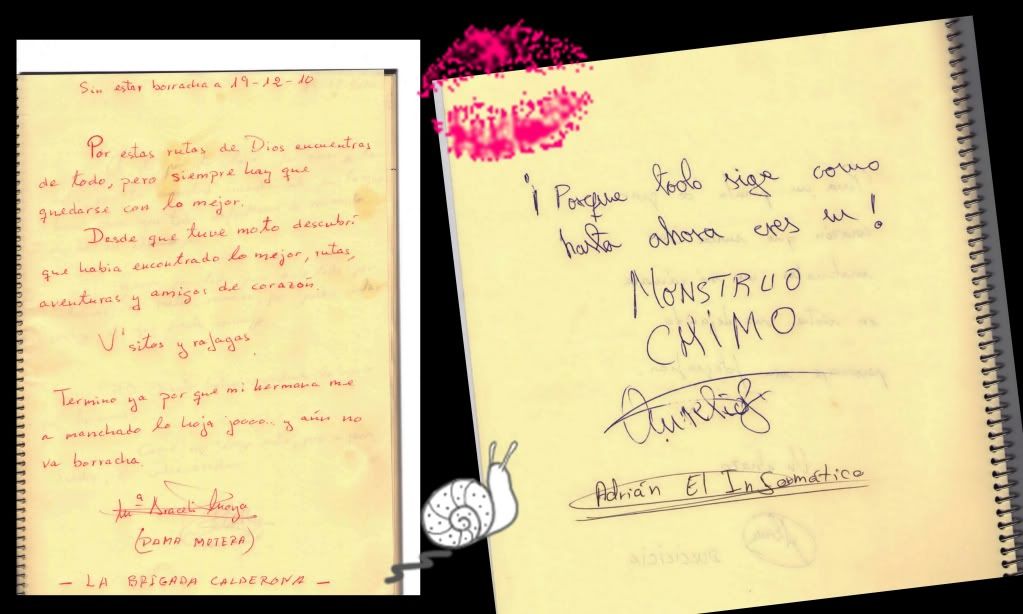 Sin estar borracha a 19-12-10
Por estas rutas de Dios encuentras
de todo, pero siempre hay que
quedarse con lo mejor.
Desde que tuve moto descubrí
que habia encontrado lo mejor, rutas,
aventuras y amigos de corazón.
V' sitos y rafagas
Termino ya por que mi hermana me
a manchado la hoja joooo... y aún no
va borracha.
Mª Araceli
(DAMA MOTERA)
- LA BRIGADA CALDERONA -
¡Porque todo sige como
hasta ahora eres un!
MONSTRUO
CHIMO
Aurelio
Adrián El Informático